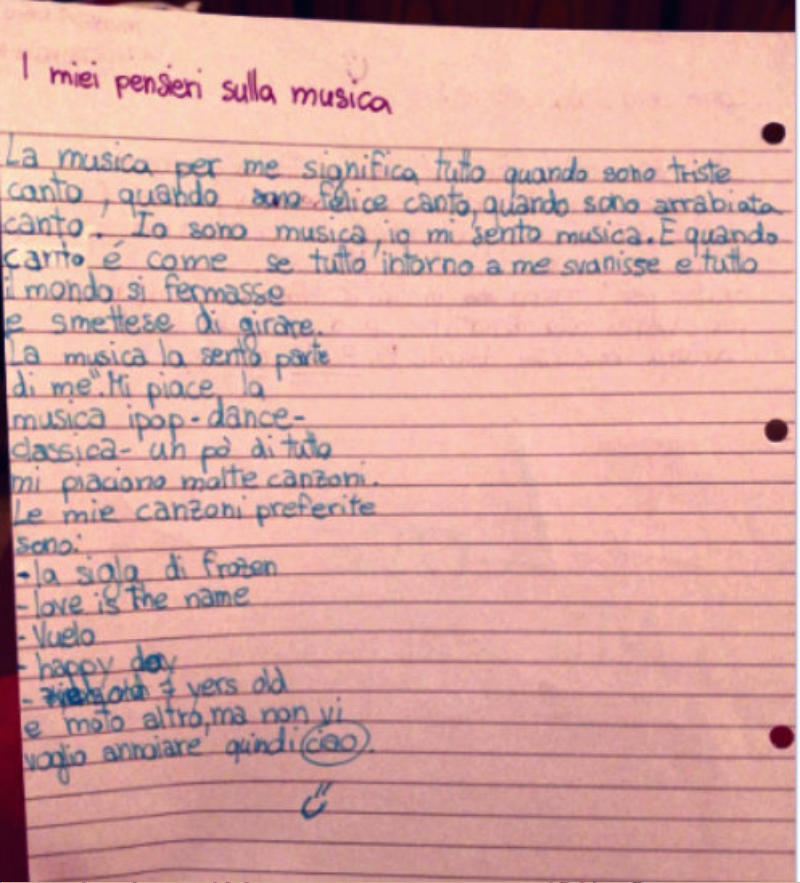 I miei pensieri sulla musica
La musica per me significa tutto quando sono triste
canto, quando sono felice canto, quando sono arrabiata
canto. Io sono musica, io mi sento musica. E quando
canto é come se tutto intorno a me svanisse e tutto
il mondo si fermasse
e smettese di girare.
La musica la sento parte
di me". Mi piace la
musica ipop-dance-
classica- un pò di tutto
mi piaciono molte canzoni.
Le mie canzoni preferite
sono:
-la sigla di frozen
-love is the name
-Vuelo
-happy day
- 7 yers old
e molto altro, ma non vi
voglio annoiare quindi ciao.